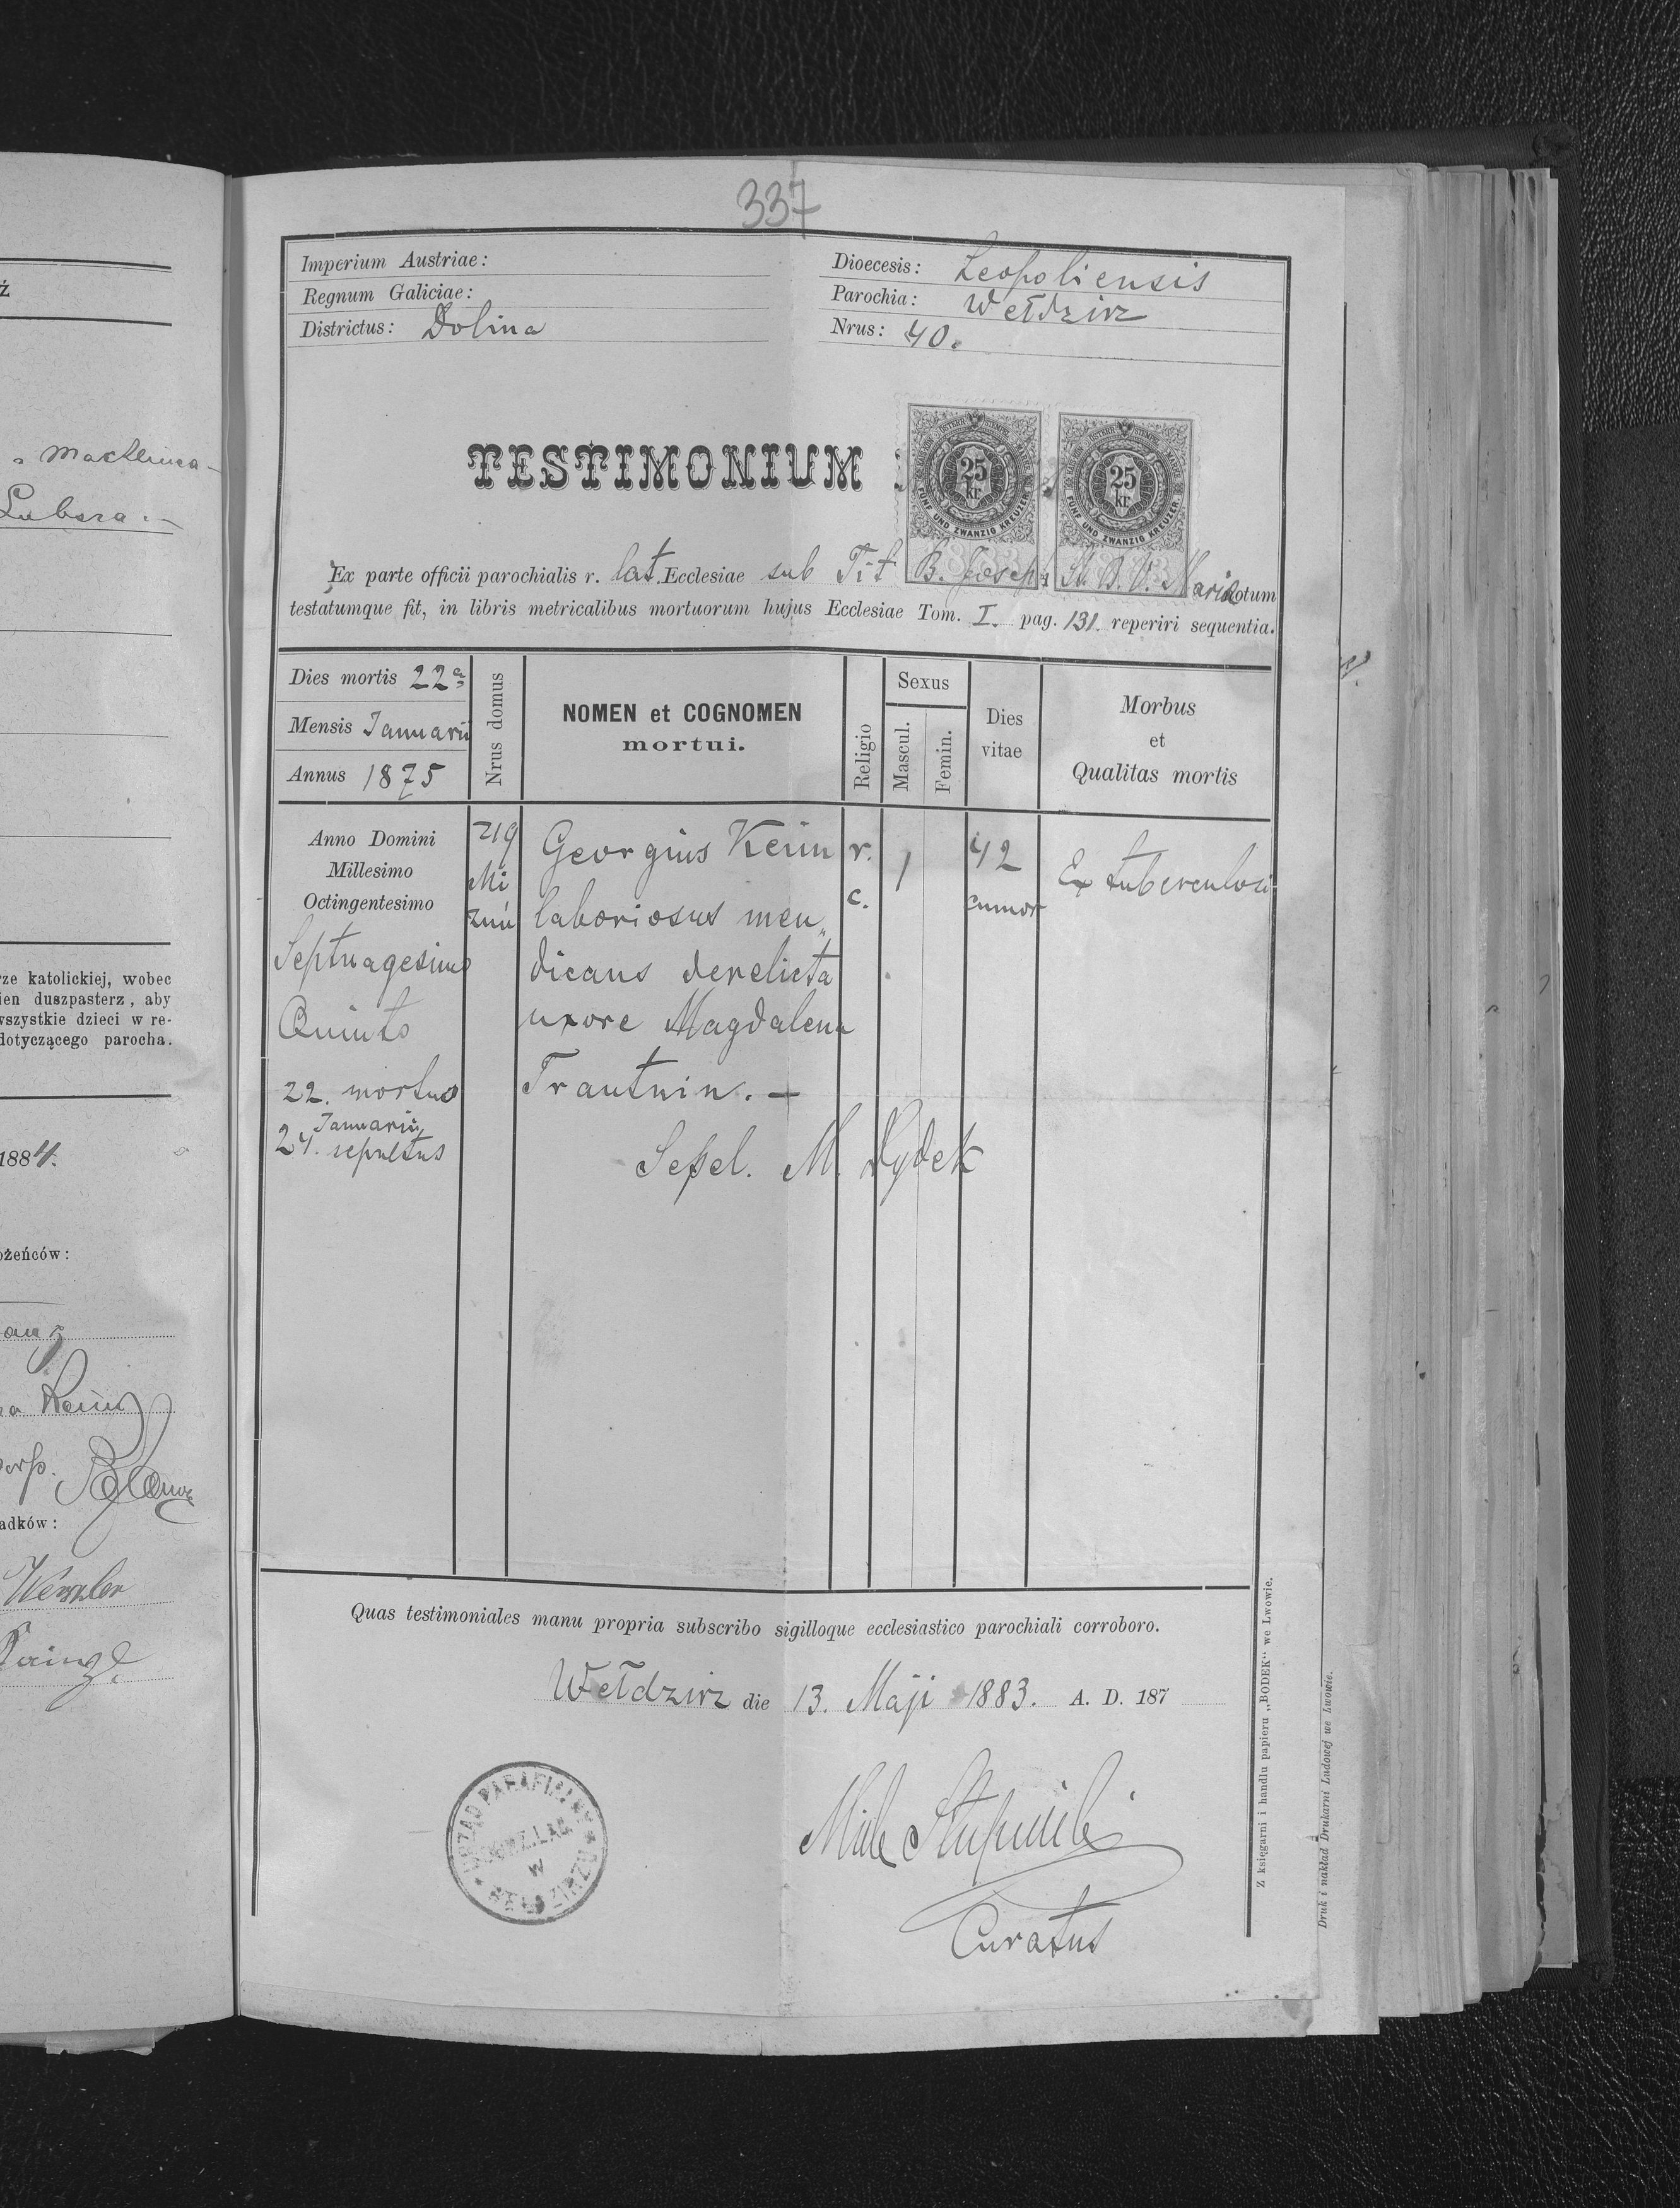 ż
„ Maklenica –
Lubsza . –
rze katolickiej, wobec
ien duszpasterz, aby
wszystkie dzieci w re-
dotyczącego parocha.
1884.
ożeńców:
adków:
337
Imperium Austriae:
Regnum Galiciae:
Districtus: Dolina
Dioecesis: Leopoliensis
Parochia: Wełdzirz
Nrus: 40.
TESTIMONIUM
25
kr
FÜNF UND ZWANZIG KREUZER
25
kr
FÜNF UND ZWANZIG KREUZER
Ex parte officii parochialis r. lat. Ecclesiae sub Tit B. Joseph B. V. Maria notum
testatumque fit, in libris metricalibus mortuorum hujus Ecclesiae Tom. I. pag. 131. reperiri sequentia.
Dies mortis 22a
Mensis Januarii
Annus 1875
Nrus domus
NOMEN et COGNOMEN
mortui.
Religio
Sexus
Mascul.
Femin.
Dies
vitae
Morbus
et
Qualitas mortis
Anno Domini
Millesimo
Octingentesimo
Septuagesimo
Quinto
22. mortuo
Januarii
24. sepultus
219
Mi
zuń
Georgius Keim
laboriosus men„
dicans derelicta
uxore Magdalena
Trautnin. –
Sepel. M. Dydek
r.
c.
1
42
annor
Ex tuberculosi
Quas testimoniales manu propria subscribo sigilloque ecclesiastico parochiali corroboro.
Wełdzirz die 13. Maji 1883. A. D. 187
URZĄD PARAFIALNY
OBRZ. ŁAC.
W
Curatus
Z księgarni i handlu papieru „BODEK“ we Lwowie.
Druk i nakład Drukarni Ludowej we Lwowie.